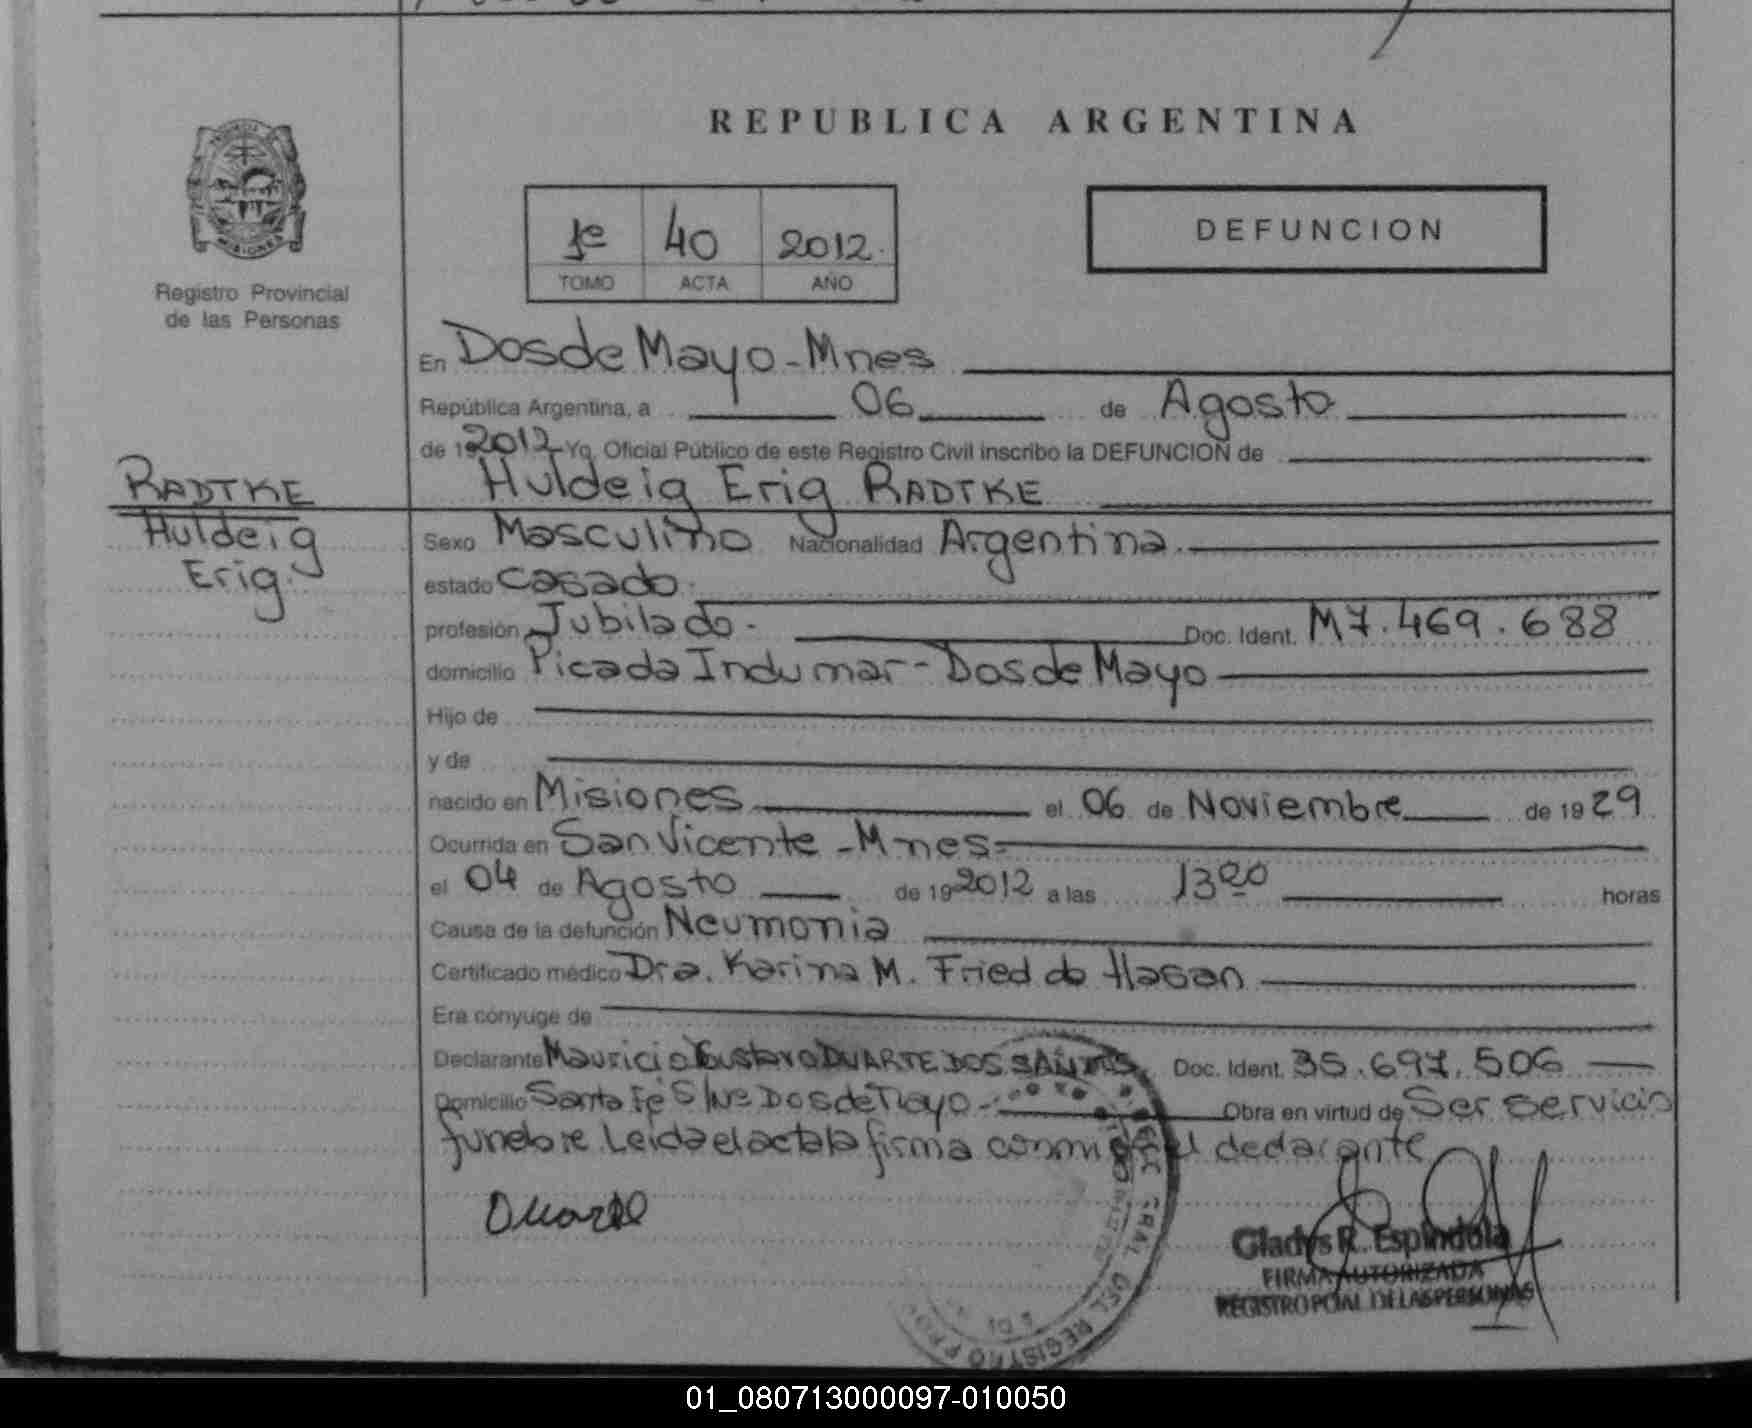 REPUBLICA ARGENTINA
1º 40 2012.
TOMO ACTA AÑO
DEFUNCION
MISIONES
Registro Provincial
de las Personas
En Dos de Mayo - Mnes
República Argentina, a 06 de Agosto
de 19 2012 Yo, Oficial Público de este Registro Civil inscribo la DEFUNCION de
Huldeig Erig RADTKE
RADTKE
Huldeig
Erig.
Sexo Masculino Nacionalidad Argentina.
estado casado.
profesión Jubilado. Doc. Ident. M7.469.688
domicilio Picada Indumar - Dos de Mayo
Hijo de
y de
nacido en Misiones el 06 de Noviembre de 1929
Ocurrida en San Vicente - Mnes
el 04 de Agosto de 19 2012 a las 13 horas
Causa de la defunción Neumonia
Certificado médico Dra. Karina M. Fried do Hasan
Era cónyuge de
Declarante Mauricio Gustavo DUARTE DOS SANTOS Doc. Ident. 35.697.506
Domicilio Santa Fé S/Nº Dos de Mayo - Obra en virtud de Ser servicio
funebre. Leida el acta la firma conmigo el declarante
Duarte
Gladys R. Espindola
FIRMA AUTORIZADA
REGISTRO PCIAL DE LAS PERSONAS
GRAL DEL REGISTRO
01_080713000097-010050